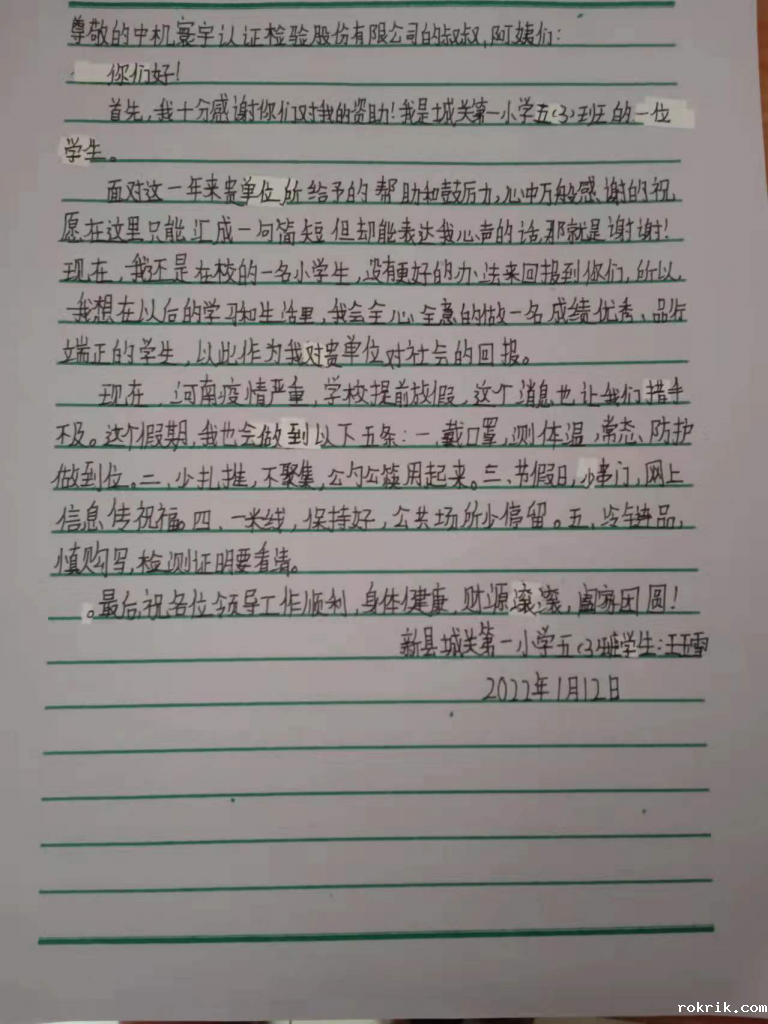 尊敬的中机寰宇认证检验股份有限公司的叔叔,阿姨们:
你们好!
首先,我十分感谢你们对我的资助!我是城关第一小学五(3)班的一位
学生。
面对这一年来贵单位所给予的帮助和鼓厉力,心中万般感谢的祝
愿在这里只能汇成一句简短但却能表达我心声的话,那就是谢谢!
现在,我还是在校的一名小学生,没有更好的办法来回报到你们,所以,
我想在以后的学习和生活里,我会全心全意的做一名成绩优秀、品行
端正的学生,以此作为我对贵单位对社会的回报。
现在,河南疫情严重,学校提前放假,这个消息也让我们措手
不及。这个假期,我也会做到以下五条:一、戴口罩,测体温,常态、防护
做到位。二、少扎推,不聚集,公勺公筷用起来。三、节假日,少串门,网上
信息传祝福。四、一米线,保持好,公共场所少停留。五、冷链品,
慎购写,检测证明要看清。
。最后,祝各位领导工作顺利,身体健康,财源滚滚,阖家团圆!
新县城关第一小学五(3)班学生:王玉雪
2022年1月12日
rokrik.com